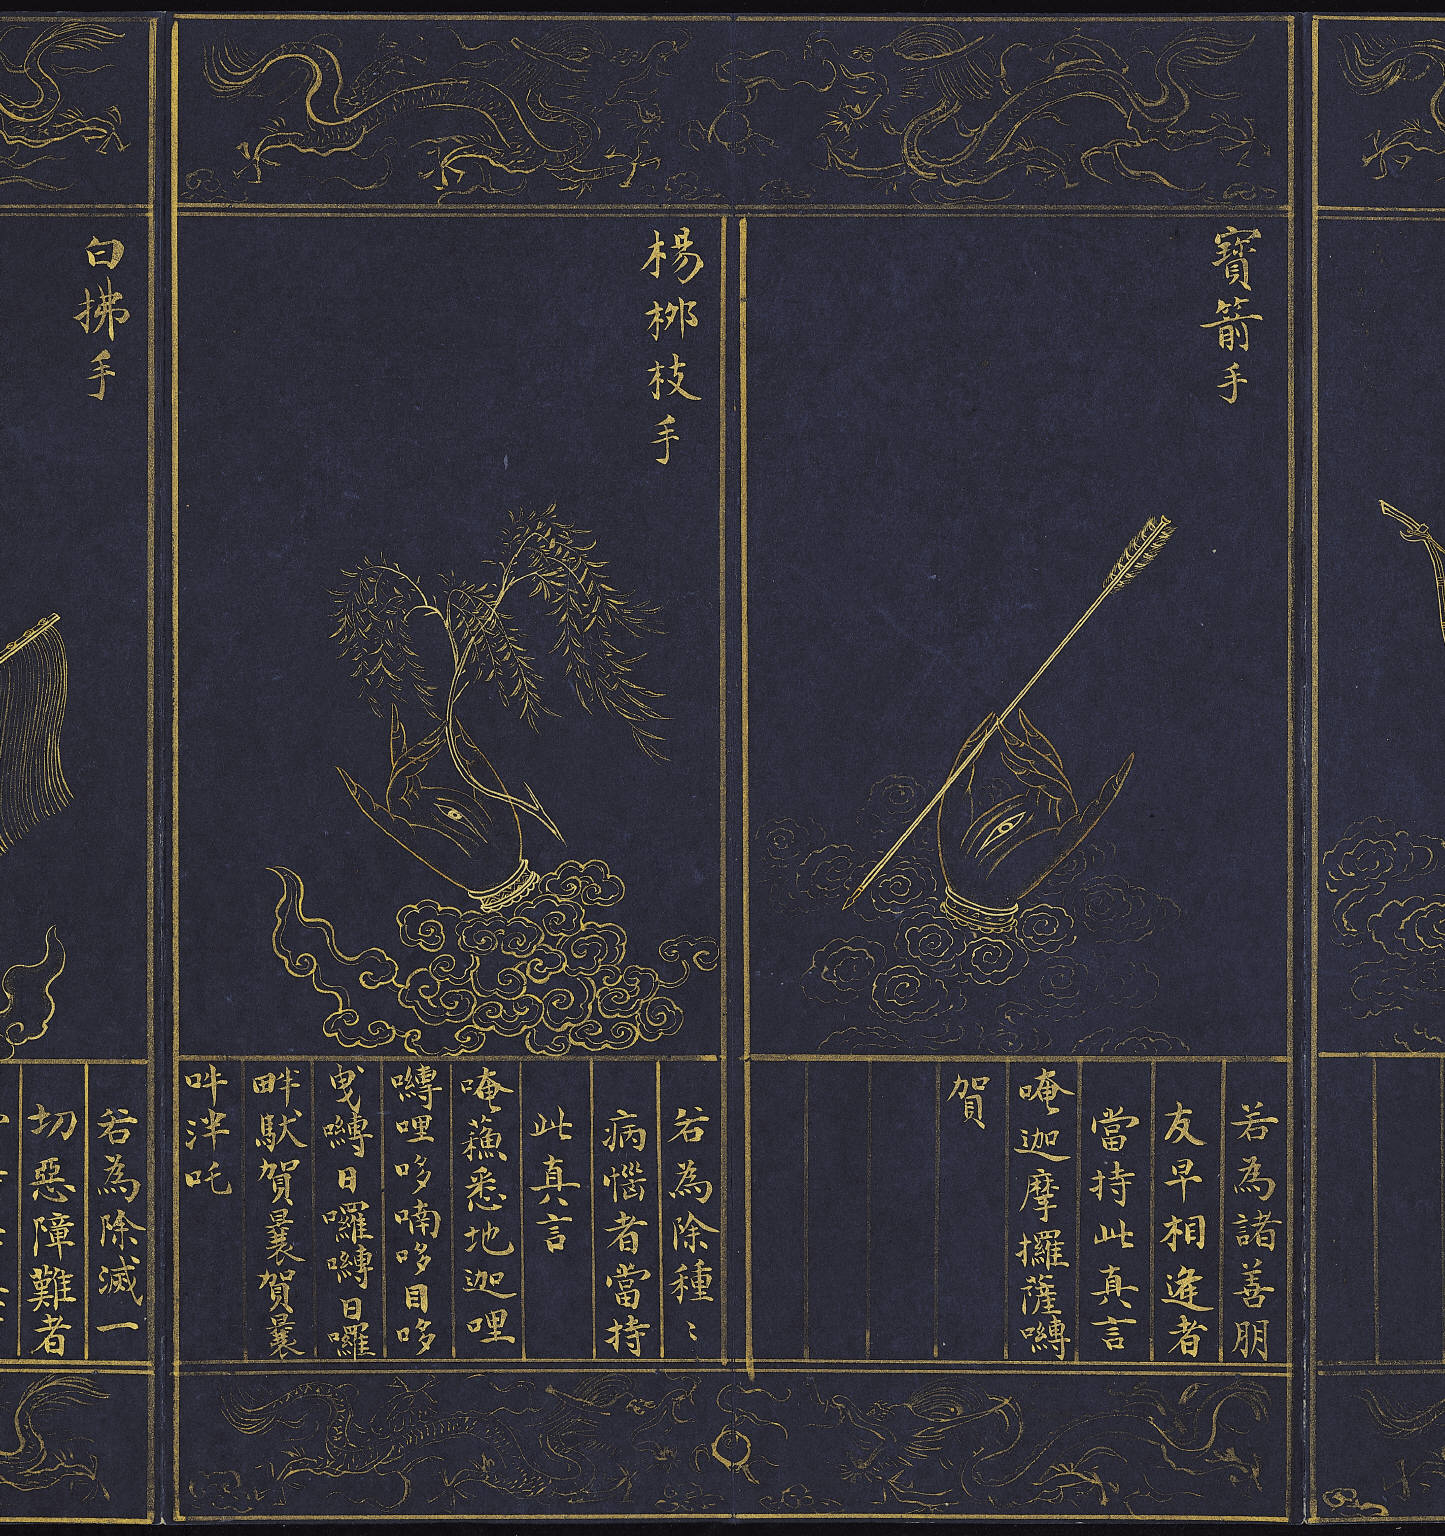 寶箭手
若為諸善朋
友早相逢者
當持此真言
唵迦摩攞薩嚩
賀
楊桺枝手
若為除種〻
病惱者當持
此真言
唵蘓悉地迦哩
嚩哩哆喃哆目哆
曳嚩日囉嚩日囉
畔馱賀曩賀曩
吽泮吒
白拂手
若為除滅一
切惡障難者